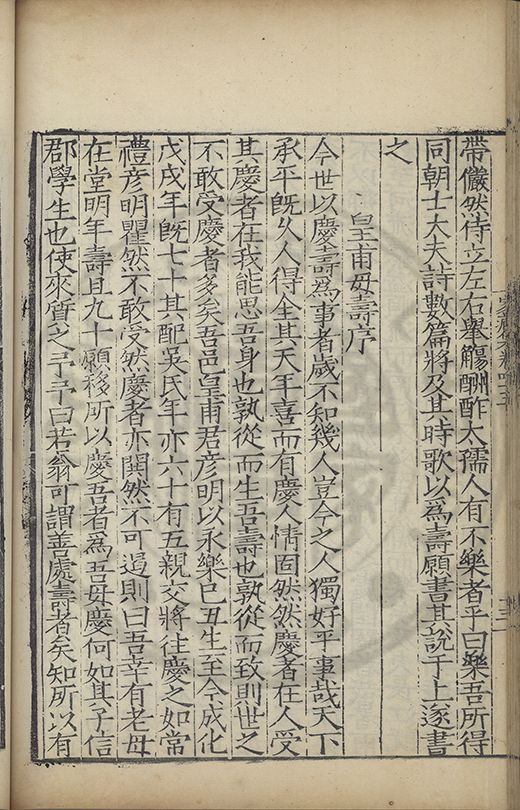 帶儼然侍立左右舉觴酬酢太孺人有不樂者乎曰樂吾所得
同朝士大夫詩數篇將及其時歌以為壽願書其說于上逐書
之
皇甫母壽序
今世以慶壽為事者歲不知幾人豈今之人獨好乎事哉天下
承平旣久人得全其天年喜而有慶人情固然然慶者在人受
其慶者在我能思吾身也孰從而生吾壽也孰從而致則世之
不敢受慶者多矣吾邑皇甫君彥明以永樂己丑生至今成化
戊戌年旣七十其配吳氏年亦六十有五親交將往慶之如常
禮彥明瞿然不敢受然慶者亦閧然不可遏則曰吾幸有老母
在堂明年壽且九十願移所以慶吾者為吾母慶何如其子信
郡學生也使來質之予予曰若翁可謂善處壽者矣知所以有